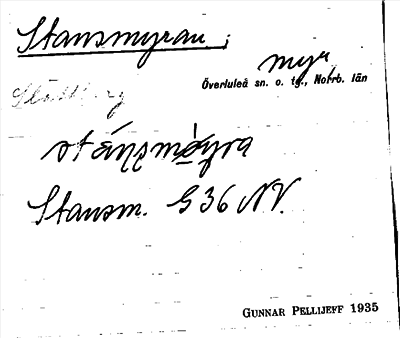 Stansmyran ;
myr
Överluleå sn. o. tg., Norrb. län
stánsmỳra
Stansm. G 36 NV.
GUNNAR PELLIJEFF 1935